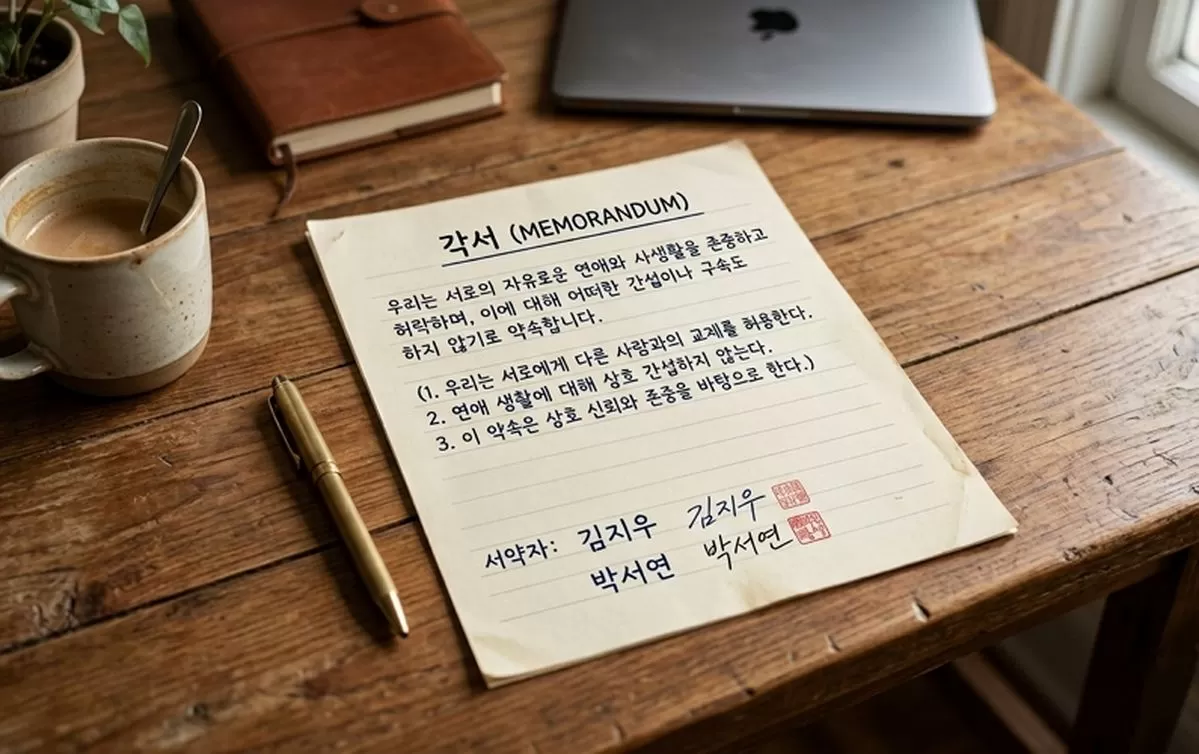 각서 (MEMORANDUM)
우리는 서로의 자유로운 연애와 사생활을 존중하고
허락하며, 이에 대해 어떠한 간섭이나 구속도
하지 않기로 약속합니다.
(1. 우리는 서로에게 다른 사람과의 교제를 허용한다.
2. 연애 생활에 대해 상호 간섭하지 않는다.
3. 이 약속은 상호 신뢰와 존중을 바탕으로 한다.)
서약자: 김지우 김지우
박서연 박서연